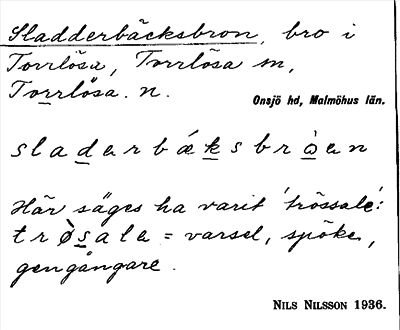 Sladderbäcksbron, bro i
Torrlösa, Torrlösa sn,
Torrlösa. n.
Onsjö hd, Malmöhus län.
sladarbæksbròan
Här säges ha varit 'trössale':
trø̀sala = varsel, spöke,
gengångare.
NILS NILSSON 1936.